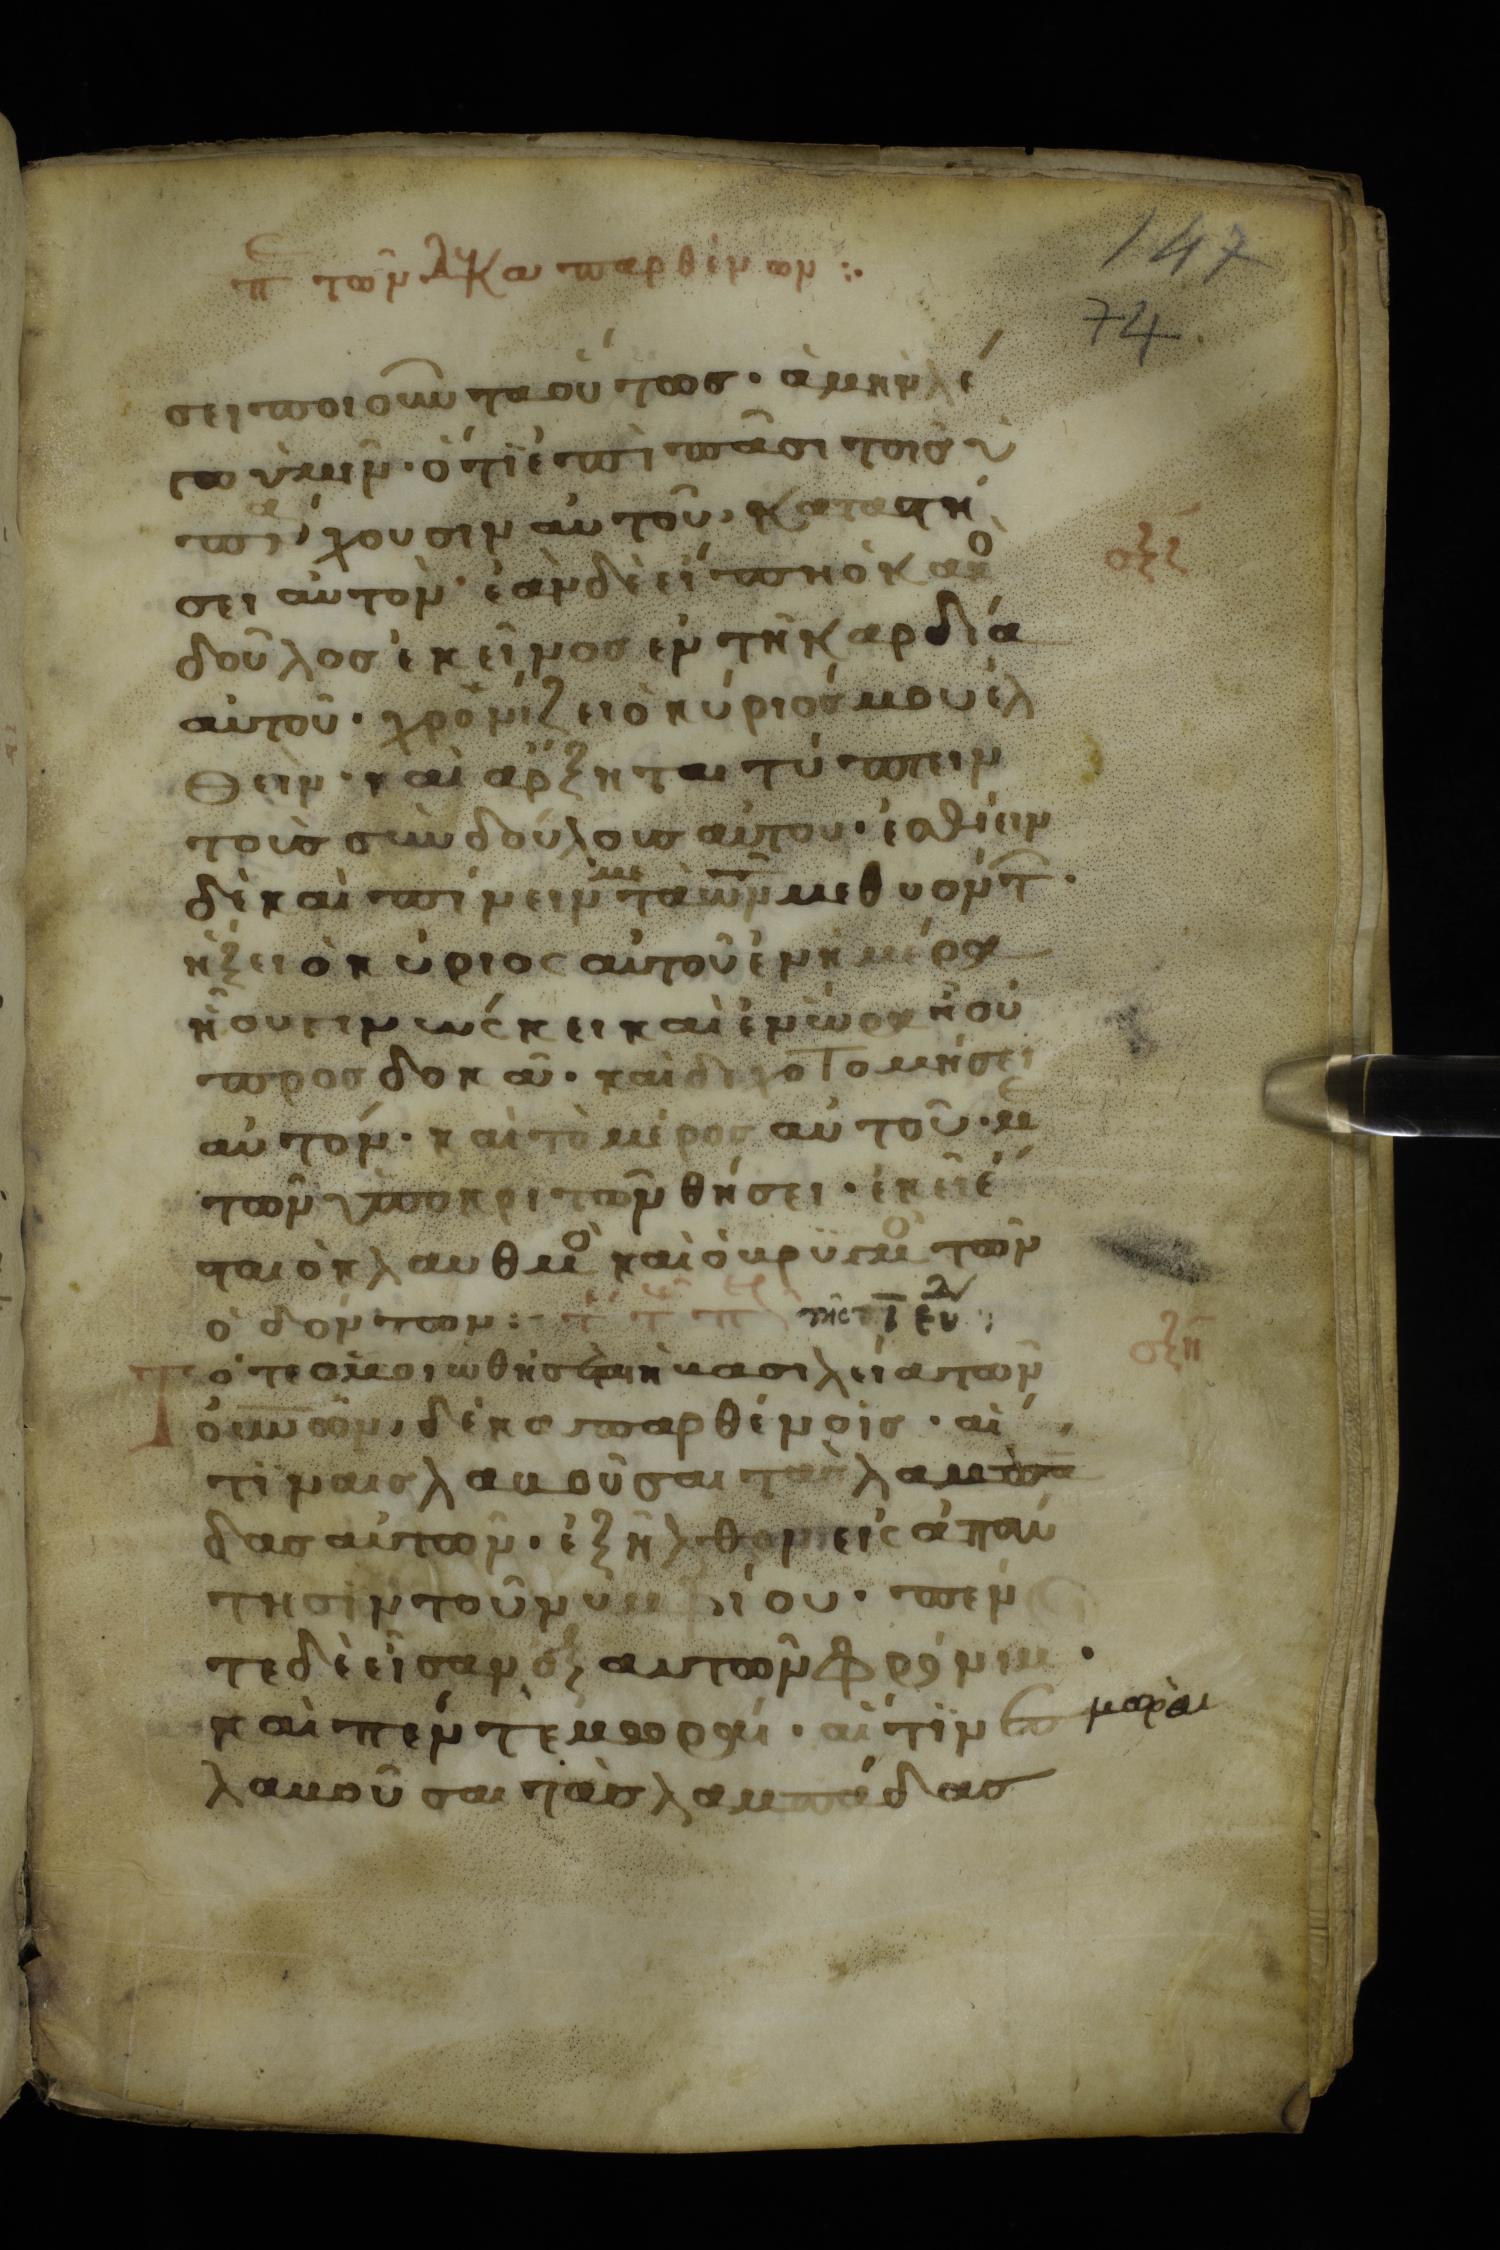 πε τῶν δέκα παρθένων :·
147
74
σει ποιοῦντα οὕτως· ἀμὴν λέ
γω ὑμῖν· ὅτι ἐπὶ πᾶσι τοῖς ὑ
πάρχουσιν αὐτοῦ, καταστή
σει αὐτόν· ἐὰν δὲ εἴπη ὁ κακο
σξζ
δοῦλος ἐκεῖνος ἐν τῆ καρδία
αὐτοῦ· χρονίζει ὁ κύριός μου ἐλ
θεῖν· καὶ ἄρξηται τύπτειν
τοὺς συνδούλους αὐτοῦ· ἐσθίειν
δὲ καὶ πίνειν μετὰ τῶν μεθυόντ·
ἥξει ὁ κύριος αὐτοῦ ἐν ἡμέρα
ἧ οὐ γινώσκει καὶ ἐν ὥρα ἧ οὐ
προσδοκᾶ· καὶ διχοτομήσει
αὐτόν· καὶ τὸ μέρος αὐτοῦ· με
τῶν ὑποκριτῶν θήσει· ἐκεῖ ἔ
σται ὁ κλαυθμο καὶ ὁ βρυγμο τῶν
ὀδόντων :-
σξη
Τότε ὁμοιωθήσεται ἡ βασιλεία τῶν
οὐνῶν, δέκα παρθένοις· αἵ
τινες λαβοῦσαι τὰς λαμπά
δας αὐτῶν· ἐξῆλθον εἰς ἀπάν
τησιν τοῦ νυμφίου· πέν
τε δὲ εἶσαν ἐξ αὐτῶν φρόνιμ·
καὶ πέντε μωραί· αἵτιν
μωραι
λαβοῦσαι τὰς λαμπάδας